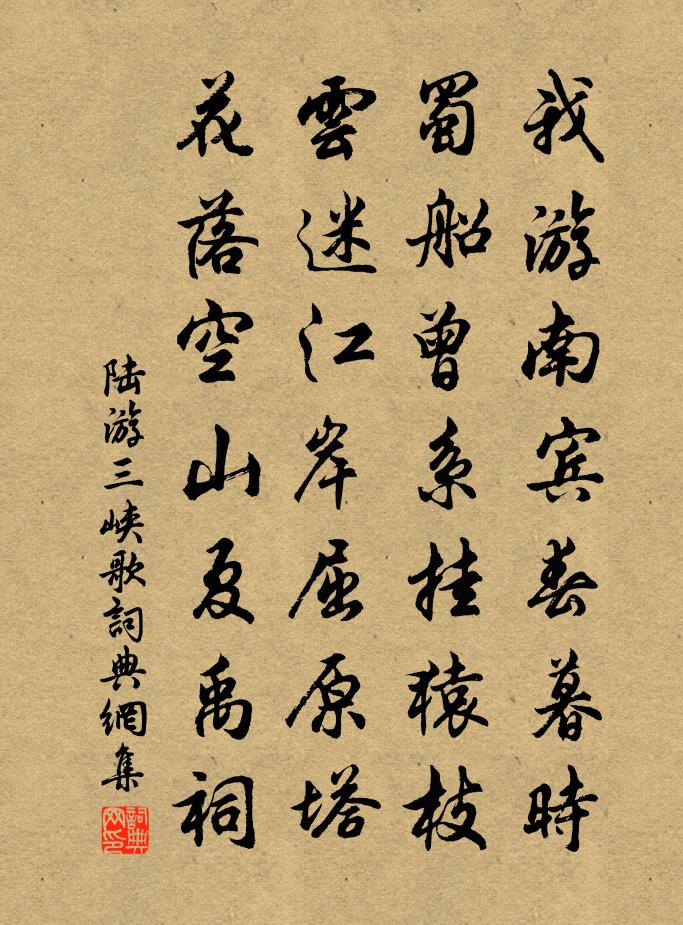 我游南宾春暮時
蜀船曾系挂猿枝
雲迷江岸屈原塔
花落空山夏禹祠
陆游三峡歌詞典網集
詞典网印